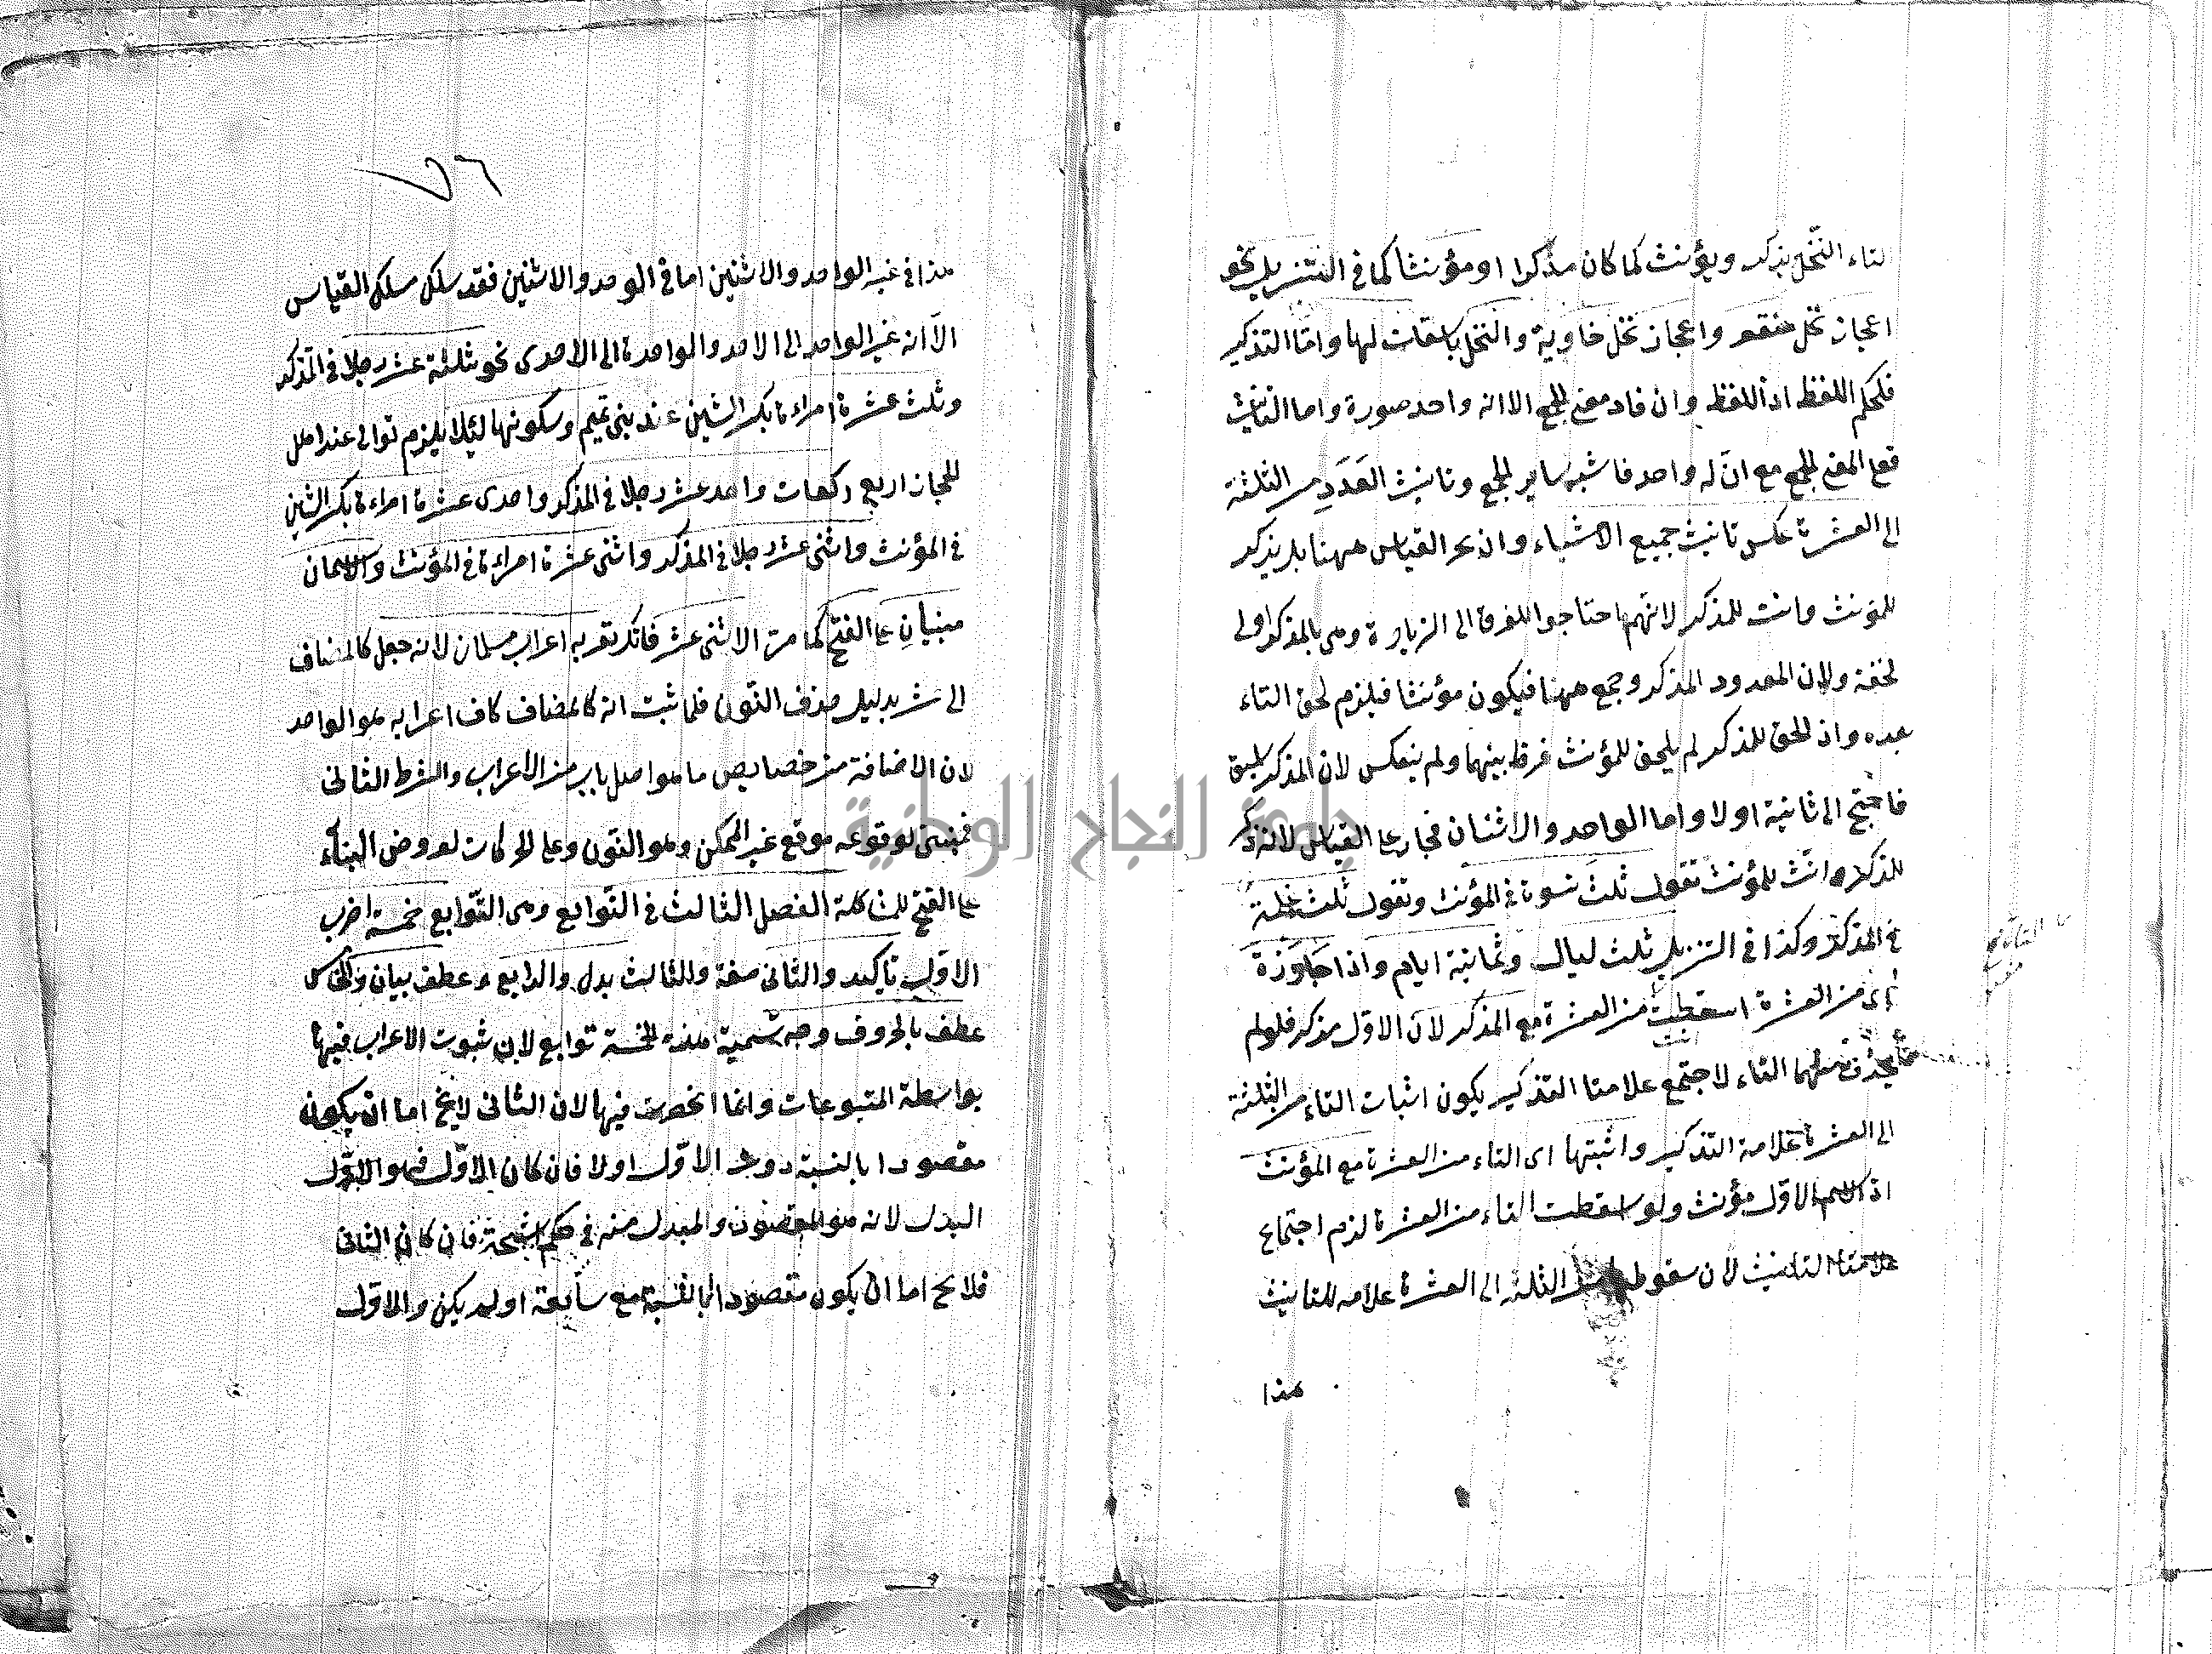 التاء النخل يذكر ويؤنث كما كان مذكرا او مؤنثا كما في التنزيل نحو
اعجاز نخل منقعر واعجاز نخل خاوية والنخل باسقات لها واما التذكير
فلحكم اللفظ اذ اللفظ وان فاد معنى الجمع الا انه واحد صورة واما التانيث
فعلى المعنى الجمع مع ان له واحد فاشبه ساير الجمع وتانيث العدد من الثلثة
الى العشرة عكس تانيث جميع الاشياء وان القياس ههنا بل يذكر
للمؤنث وانث للمذكر لانهم احتاجوا للفرق الى الزيادة وهي بالمذكر اولى
لخفة ولان المعدود المذكر وجمع ههنا فيكون مؤنثا فيلزم لحق التاء
عدده واذ الحق للمذكر لم يلحق للمؤنث فرقا بينهما ولم ينعكس لان المذكر
فاحتيج الى ثانية اولا واما الواحد والاثنان فجار على القياس لانه ذكر
للمذكر وانث للمؤنث تقول ثلث نسوة في المؤنث وتقول ثلث غلمة
في المذكر وكذا في التنزيل ثلث ليال وثمانية ايام واذا جاوزة
اى من العشرة اسقطت من العشرة مع المذكر لان الاول مذكر فلو لم
يحذف منهما التاء لاجتمع علامتا التذكير يكون اثبات التاء من الثلثة
الى العشرة علامة التذكير واثبتها اى التاء من العشرة مع المؤنث
اذ الاسم الاول مؤنث ولو اسقطت التاء من العشرة لزم اجتماع
علامتا التانيث لان سقوط الثلثة الى العشرة علامه للتانيث
هذا
٧٦
هذا في غير الواحد والاثنين اما في الوحد والاثنين فقد سلك مسلك القياس
الا انه غير الواحد الى الاحد والواحدة الى الاحدى نحو ثلثة عشر رجلا في المذكر
وثلث عشرة امراءة بكسر الشين عند بني تميم وسكونها لئلا يلزم توالى عند اهل
الحجاز اربع ركعات واحد عشر رجلا في المذكر واحدى عشرة امراءة بكسر الشين
في المؤنث واثنى عشر رجلا في المذكر واثنى عشرة امراءة في المؤنث والاسمان
مبنيان على الفتح كما مر الا اثنى عشر فانك تعربه اعراب مسلمان لانه جعل كالمضاف
الى عشر بدليل حذف النون فلما ثبت انه كالمضاف كان اعرابه هو الواحد
لان الاضافة من خصايص ما هو اصل باب من الاعراب والشرط الثاني
فمبنى لوقوعه موقع غير الممكن وهو النون وعلى الحركات لعروض البناء
على الفتح للمشاكلة الفصل الثالث في التوابع وهى التوابع خمسة اضرب
الاول تأكيد والثاني صفة والثالث بدل والرابع عطف بيان والخامس
عطف بالحروف وجه تسمية هذه الخمسة توابع لان ثبوت الاعراب فيها
بواسطة المتبوعات وانما انحصرت فيها لان الثاني لا يخ اما ان يكون
مقصودا بالنسبة دون الاول اولا فان كان الاول فهو الاول
البدل لانه هو المقصود والمبدل منه في حكم فان كان الثاني
فلا يخ اما ان يكون مقصودا بالنسبة مع سابقه او لم يكن والاول
جامعة النجاح الوطنية